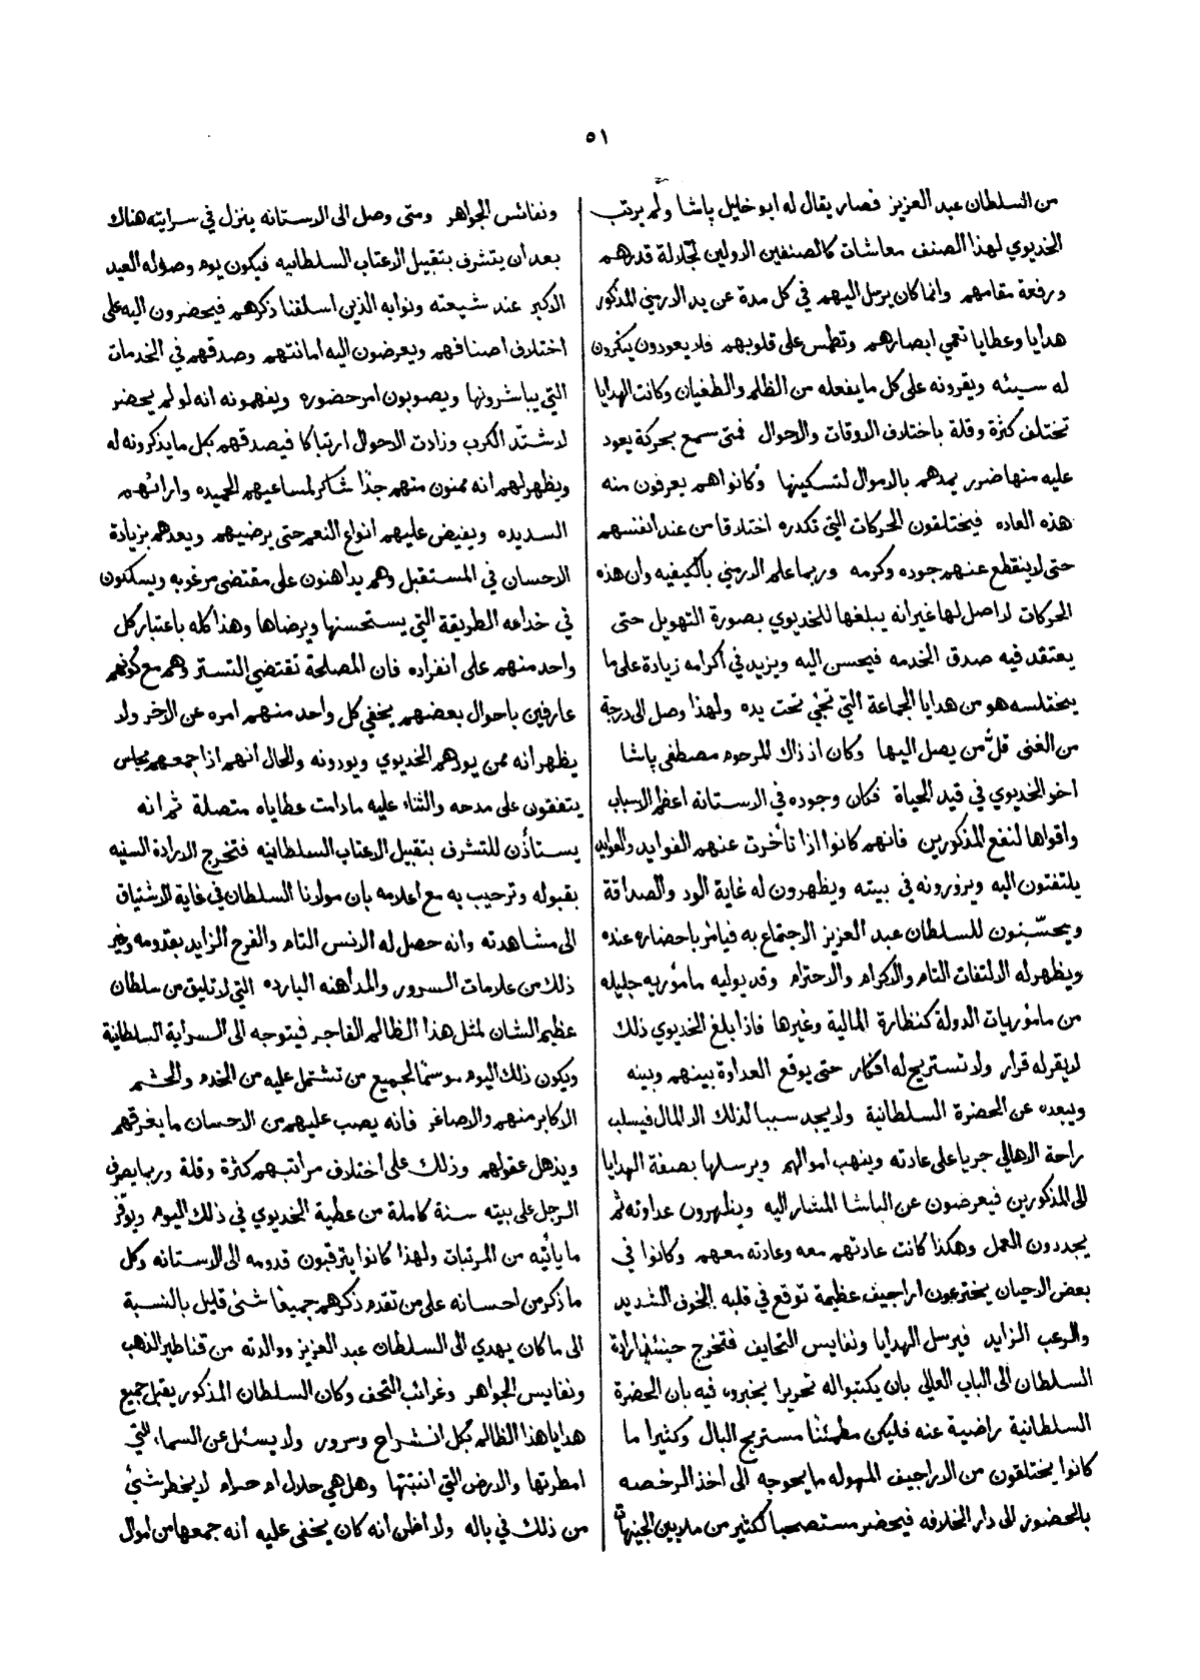 ٥١
من السلطان عبد العزيز فصار يقال له ابو خليل باشا ولم يرتب
الخديوي لهذا الصنف معاشات كالصنفين الاولين لجلالة قدرهم
ورفعة مقامهم وانما كان يرسل اليهم في كل مدة عن يد الارمني المذكور
هدايا وعطايا تعمي ابصارهم وتطمس على قلوبهم فلا يعودون ينكرون
له سيئه ويقرونه على كل ما يفعله من الظلم والطغيان وكانت الهدايا
تختلف كثرة وقلة باختلاف الاوقات والاحوال فمتى سمع بحركة يعود
عليه منها ضرر يمدهم بالاموال لتسكينها وكانوا هم يعرفون منه
هذه العاده فيختلقون الحركات التي تكدره اختلاقا من عند انفسهم
حتى لا ينقطع عنهم جوده وكرمه وربما علم الارمني بالكيفيه وان هذه
الحركات لا اصل لها غير انه يبلغها للخديوي بصورة التهويل حتى
يعتقد فيه صدق الخدمه فيحسن اليه ويزيد في اكرامه زيادة على ما
يختلسه هو من هدايا الجماعة التي تجئ تحت يده ولهذا وصل الى درجة
من الغنى قلّ من يصل اليها وكان اذ ذاك المرحوم مصطفى باشا
اخو الخديوي في قيد الحياة فكان وجوده في الاستانه اعظم الاسباب
واقواها لنفع المذكورين فانهم كانوا اذا تأخرت عنهم الفوايد والعوايد
يلتفتون اليه ويزورونه في بيته ويظهرون له غاية الود والصداقة
ويحسّنون للسلطان عبد العزيز الاجتماع به فيامر باحضاره عنده
ويظهر له الالتفات التام والاكرام والاحترام وقد يوليه ماموريه جليله
من ماموريات الدولة كنظارة المالية وغيرها فاذا بلغ الخديوي ذلك
لا يقر له قرار ولا تستريح له افكار حتى يوقع العداوة بينهم وبينه
ويبعده عن الحضرة السلطانية ولا يجد سببا لذلك الا المال فيسلب
راحة الاهالي جريا على عادته وينهب اموالهم ويرسلها بصفة الهدايا
الى المذكورين فيعرضون عن الباشا المشار اليه ويظهرون عداوته ثم
يجددون العمل وهكذا كانت عادتهم معه وعادته معهم وكانوا في
بعض الاحيان يخترعون اراجيف عظيمة توقع في قلبه الخوف الشديد
والرعب الزايد فيرسل الهدايا ونفايس التحايف فتخرج حينئذ ارادة
السلطان الى الباب العالي بان يكتبوا له تحريرا يخبروه فيه بان الحضرة
السلطانية راضية عنه فليكن مطمئنا مستريح البال وكثيرا ما
كانوا يختلقون من الاراجيف المهوله ما يحوجه الى اخذ الرخصه
بالحضور الى دار الخلافه فيحضر مستصحبا لكثير من ملايين الجنيهات
ونفائس الجواهر ومتى وصل الى الاستانه ينزل في سرايته هناك
بعد ان يتشرف بتقبيل الاعتاب السلطانيه فيكون يوم وصوله العيد
الاكبر عند شيعته ونوابه الذين اسلفنا ذكرهم فيحضرون اليه على
اختلاف اصنافهم ويعرضون اليه امانتهم وصدقهم في الخدمات
التي يباشرونها ويصوبون امر حضوره ويفهمونه انه لو لم يحضر
لاشتد الكرب وزادت الاحوال ارتباكا فيصدقهم بكل ما يذكرونه له
ويظهر لهم انه ممنون منهم جدًا شاكر لمساعيهم الحميده وارائهم
السديده ويفيض عليهم انواع النعم حتى يرضيهم ويعدهم بزيادة
الاحسان في المستقبل وهم يداهنون على مقتضى مرغوبه ويسلكون
في خداعه الطريقة التي يستحسنها ويرضاها وهذا كله باعتبار كل
واحد منهم على انفراده فان المصلحة تقتضي التستر وهم مع كونهم
عارفين باحوال بعضهم يخفي كل واحد منهم امره عن الاخر ولا
يظهر انه ممن يودهم الخديوي ويودونه والحال انهم اذا جمعهم مجلس
يتفقون على مدحه والثناء عليه ما دامت عطاياه متصلة ثم انه
يستأذن للتشرف بتقبيل الاعتاب السلطانيه فتخرج الارادة السنيه
بقبوله وترحيب به مع اعلامه بان مولانا السلطان في غاية الاشتياق
الى مشاهدته وانه حصل له الانس التام والفرح الزايد بقدومه وغير
ذلك من علامات السرور والمداهنه البارده التي لا تليق من سلطان
عظيم الشان لمثل هذا الظالم الفاجر فيتوجه الى السراية السلطانية
ويكون ذلك اليوم موسما لجميع من تشتمل عليه من الخدم والحشم
الاكابر منهم والاصاغر فانه يصب عليهم من الاحسان ما يغرقهم
ويذهل عقولهم وذلك على اختلاف مراتبهم كثرة وقلة وربما يصرف
الرجل على بيته سنة كاملة من عطية الخديوي في ذلك اليوم ويوفر
ما يأتيه من المرتبات ولهذا كانوا يترقبون قدومه الى الاستانه وكل
ما ذكر من احسانه على من تقدم ذكرهم جميعا شئ قليل بالنسبة
الى ما كان يهدي الى السلطان عبد العزيز ووالدته من قناطير الذهب
ونفايس الجواهر وغرائب التحف وكان السلطان المذكور يقبل جميع
هدايا هذا الظالم بكل انشراح وسرور ولا يسئل عن السماء التي
امطرتها والارض التي انبتتها وهل هي حلال ام حرام لا يخطر شئ
من ذلك في باله ولا اظن انه كان يخفى عليه انه جمعها من اموال